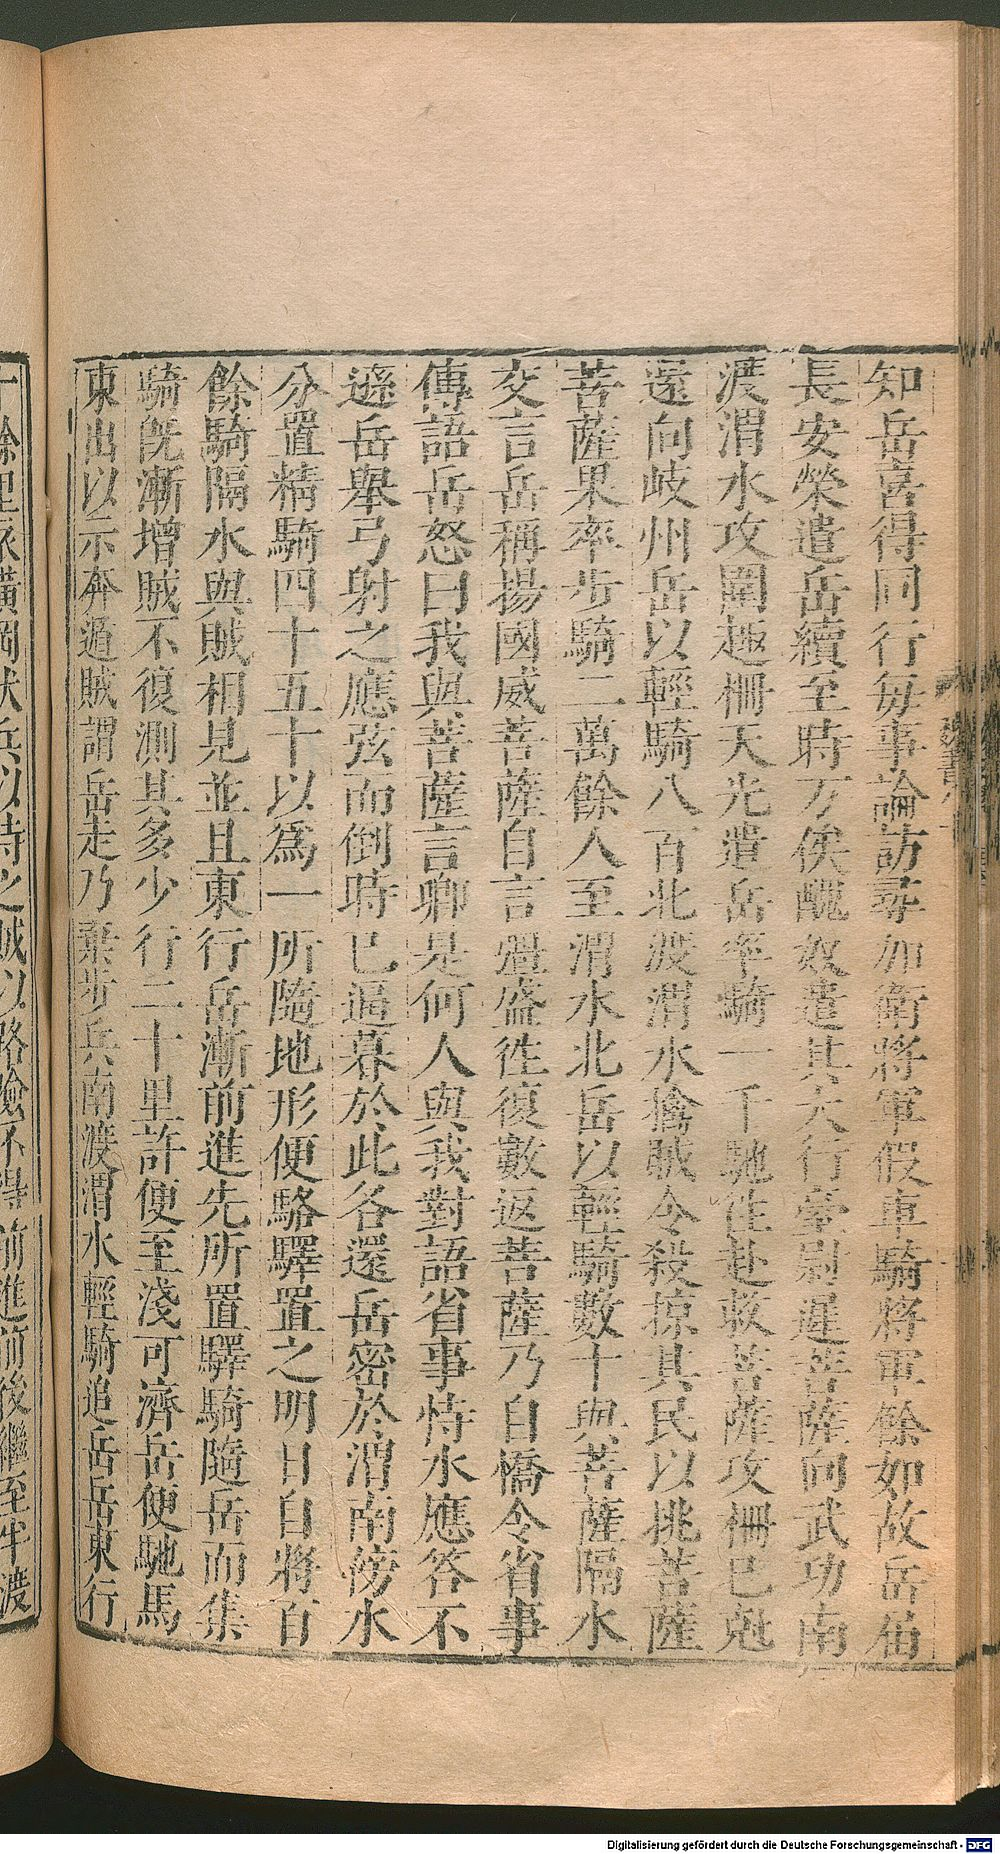 知岳喜得同行每事論訪尋加衛將軍假車騎將軍餘如故岳届
長安榮遣岳續至時万俟醜奴遣其大行臺尉遲菩薩向武功南
渡渭水攻圍趣柵天光遣岳率騎一千馳往赴救菩薩攻柵已剋
還向岐州岳以輕騎八百北渡渭水擒賊令殺掠其民以挑菩薩
菩薩果率步騎二萬餘人至渭水北岳以輕騎數十與菩薩隔水
交言岳稱揚國威菩薩自言彊盛徃復數返菩薩乃自憍令省事
傳語岳怒曰我與菩薩言卿是何人與我對語省事恃水應答不
遜岳舉弓射之應弦而倒時已逼暮於此各還岳密於渭南傍水
分置精騎四十五十以為一所隨地形便駱驛置之明日自將百
餘騎隔水與賊相見並且東行岳漸前進先所置驛騎隨岳而集
騎旣漸增賊不復測其多少行二十里許便至淺可濟岳便馳馬
東出以示奔遁賊謂岳走乃棄步兵南渡渭水輕騎追岳岳東行
十餘里依橫岡伏兵以待之賊以路險不得前進前後繼至半渡
Digitalisierung gefördert durch die Deutsche Forschungsgemeinschaft - DFG